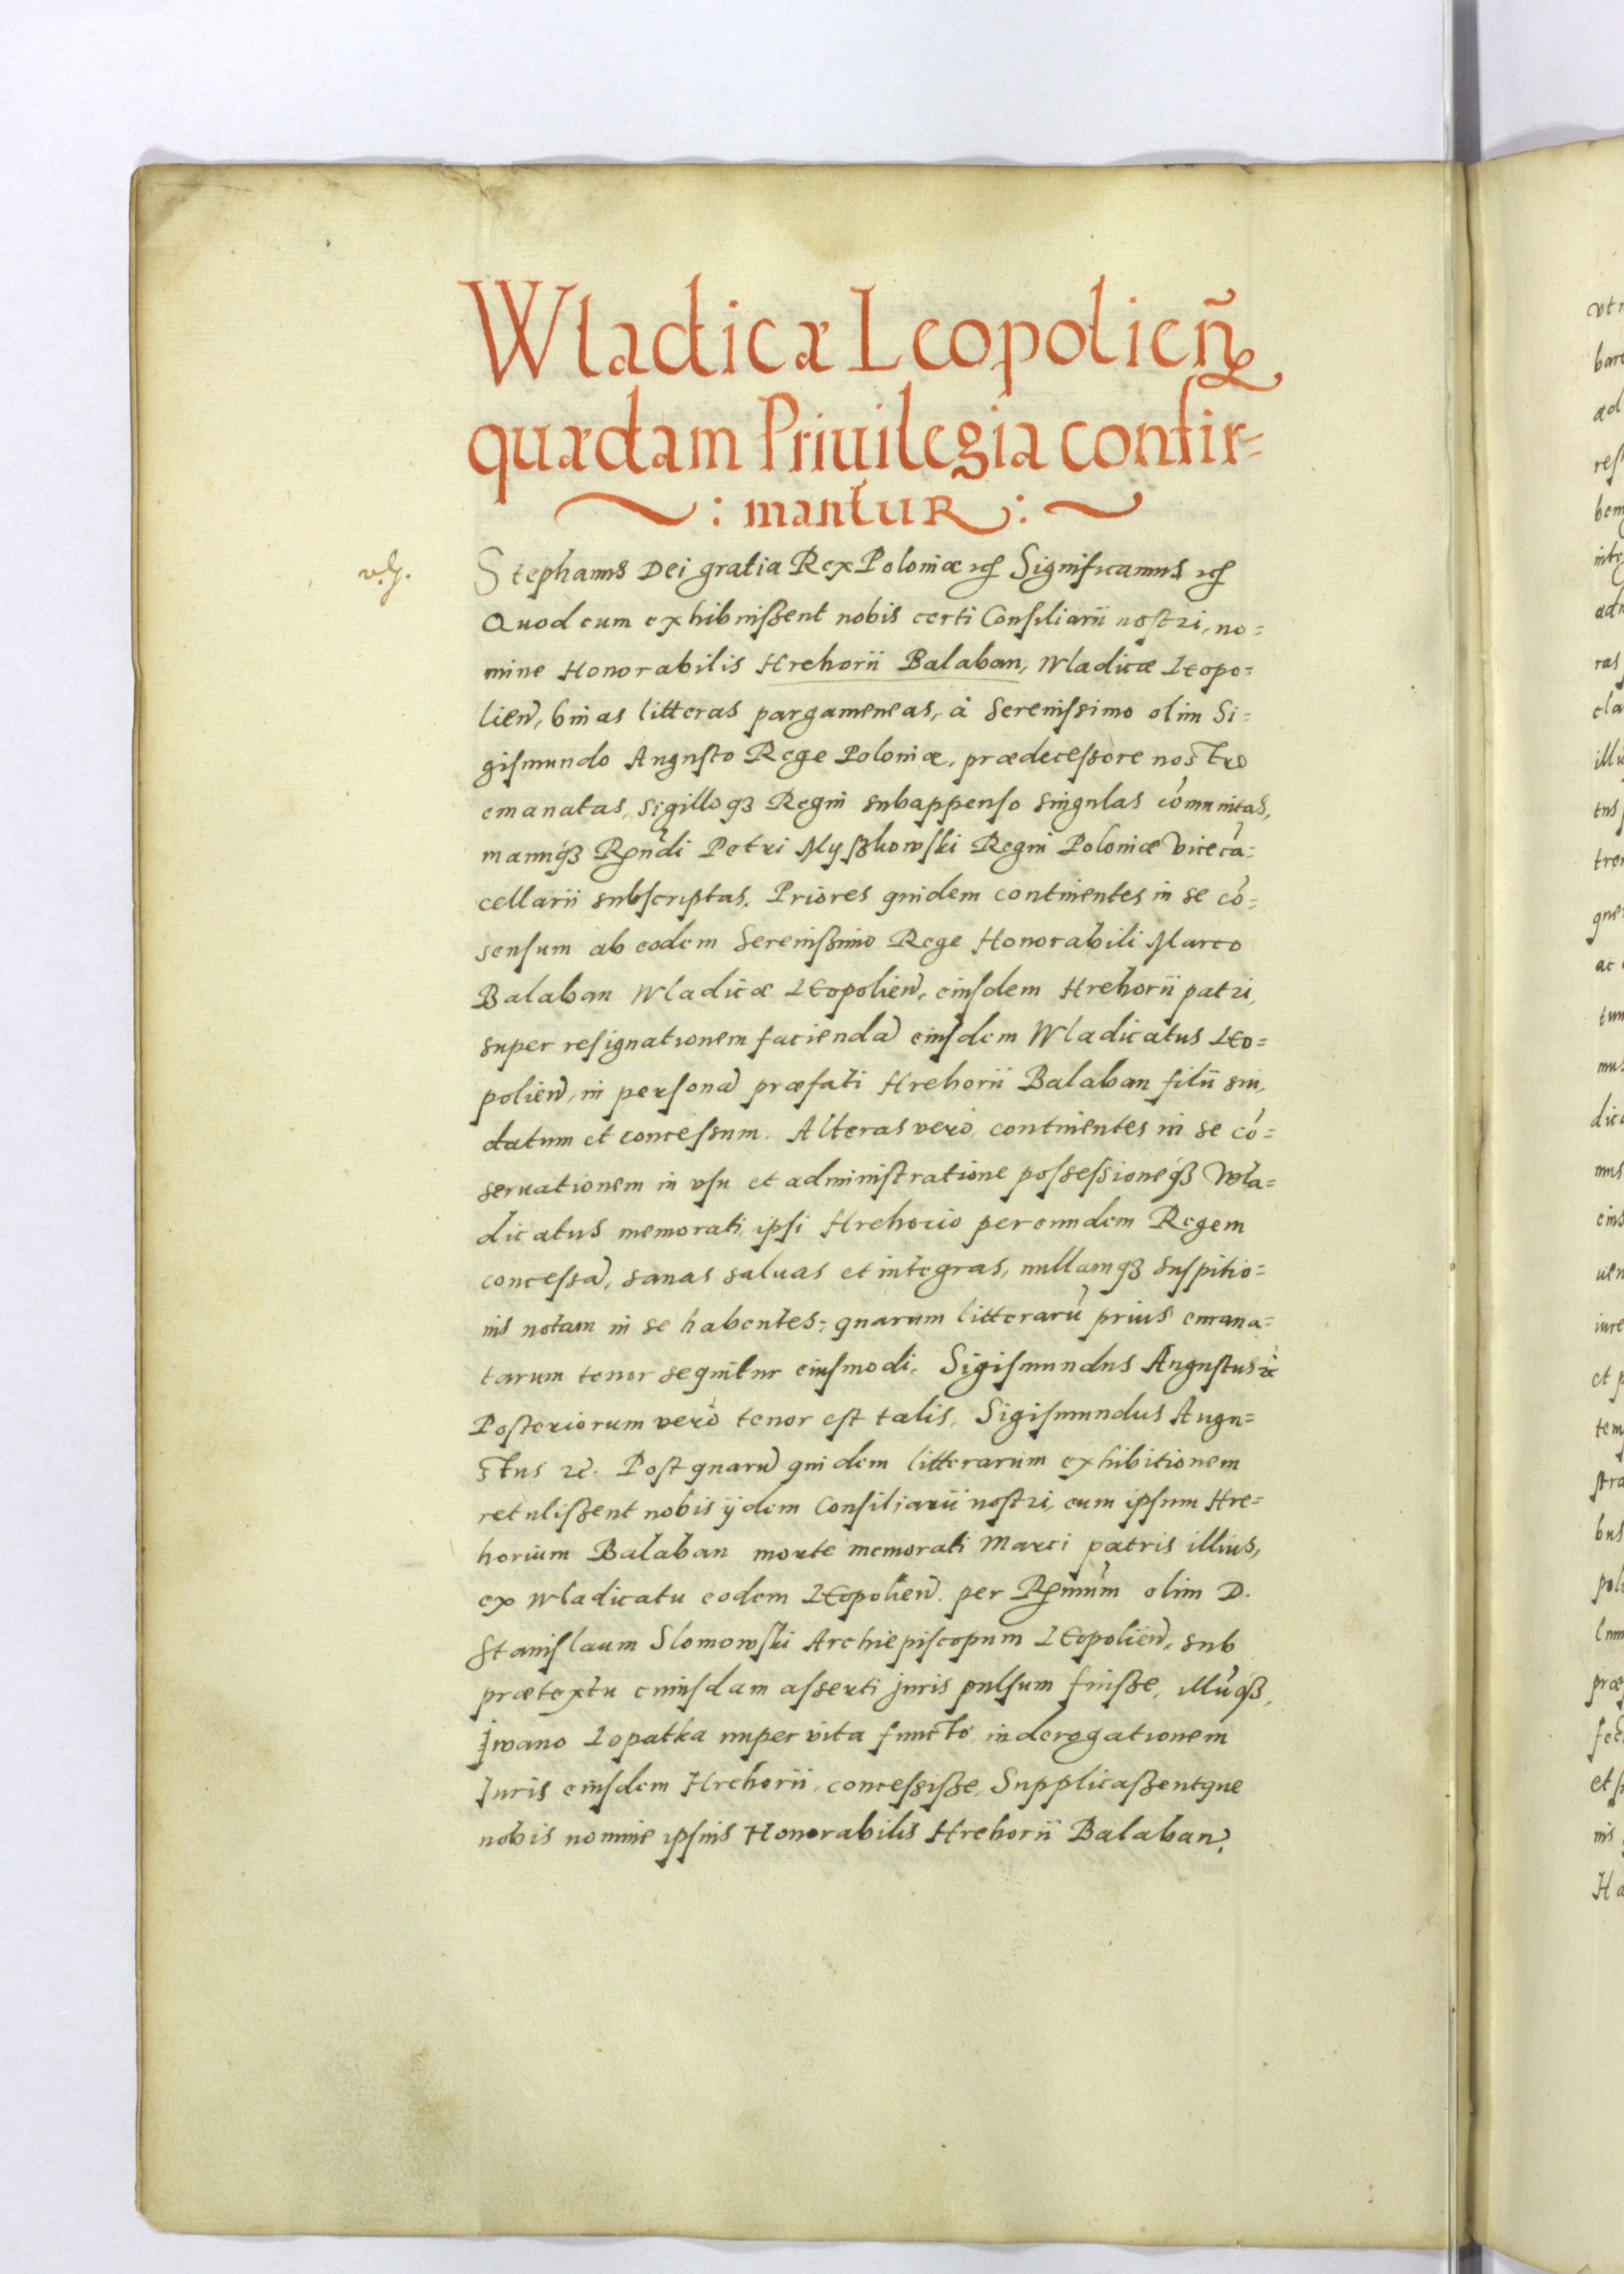 Wladicæ Leopolien̄
quædam Priuilegia confir=
: mantur :
Stephanus Dei gratia Rex Poloniæ etc Significamus etc
Quod cum exhibuißent nobis certi Consiliarii nostri, no=
mine Honorabilis Hrehorii Balaban, Wladicæ Leopo=
lien̄, binas litteras pargameneas, à Serenissimo olim Si=
gismundo Augusto Rege Poloniæ, prædecessore nostro
emanatas, sigilloq3 Regni subappenso singulas cōmunitas,
manuq́3 Rn̄di Petri Myszkowski Regni Poloniæ Vicecā=
cellarii subscriptas. Priores quidem continentes in se cō=
sensum ab eodem Serenißimo Rege Honorabili Marco
Balaban Wladicæ Leopolien̄, eiusdem Hrehorii patri,
super resignationem faciendā eiusdem Wladicatus Leo=
polien̄, in personā præfati Hrehorii Balaban filii sui,
datum et concessum. Alteras verò, continentes in se cō=
seruationem in vsu et administratione possessioneq́3 Wla=
dicatus memorati, ipsi Hrehorio per eundem Regem
concessā, sanas saluas et integras, nullamq3 suspitio=
nis notam in se habentes; quarum litterarū prius emana=
tarum tenor sequitur eiusmodi. Sigismundus Augustus etc
Posteriorum verò tenor est talis. Sigismundus Augu=
stus etc. Post quarū quidem litterarum exhibitionem
retulißent nobis ijdem Consiliarii nostri, eum ipsum Hre=
horium Balaban morte memorati Marci patris illius,
ex Wladicatu eodem Leopolien̄. per Rn̄um olim D.
Stanislaum Slomowski Archiepiscopum Leopolien̄, sub
prætextu cuiusdam asserti juris pulsum fuisse, illūq́3,
Jwano Lopatka nuper vita functo, in derogationem
Juris eiusdem Hrehorii, concessisse, Supplicaßentque
nobis nomine ipsius Honorabilis Hrehorii Balaban,